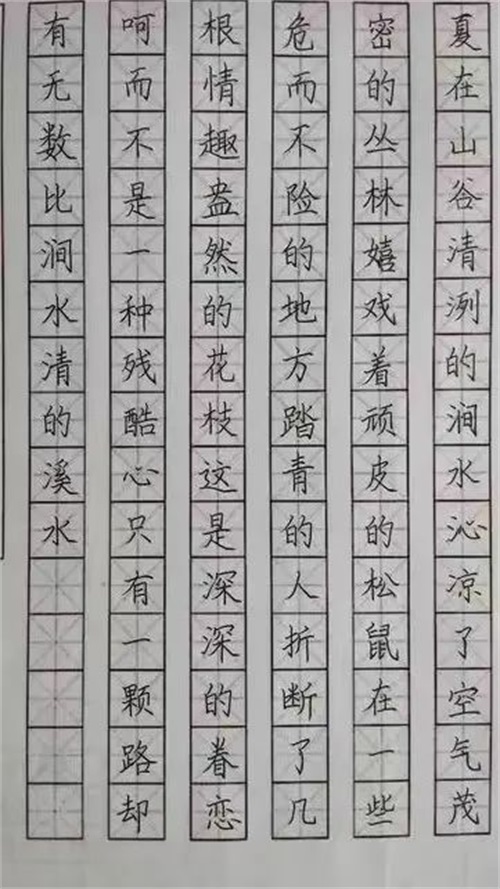 夏在山谷清洌的涧水沁凉了空气茂
密的丛林嬉戏着顽皮的松鼠在一些
危而不险的地方踏青的人折断了几
根情趣盎然的花枝这是深深的眷恋
呵而不是一种残酷心只有一颗路却
有无数比涧水清的溪水